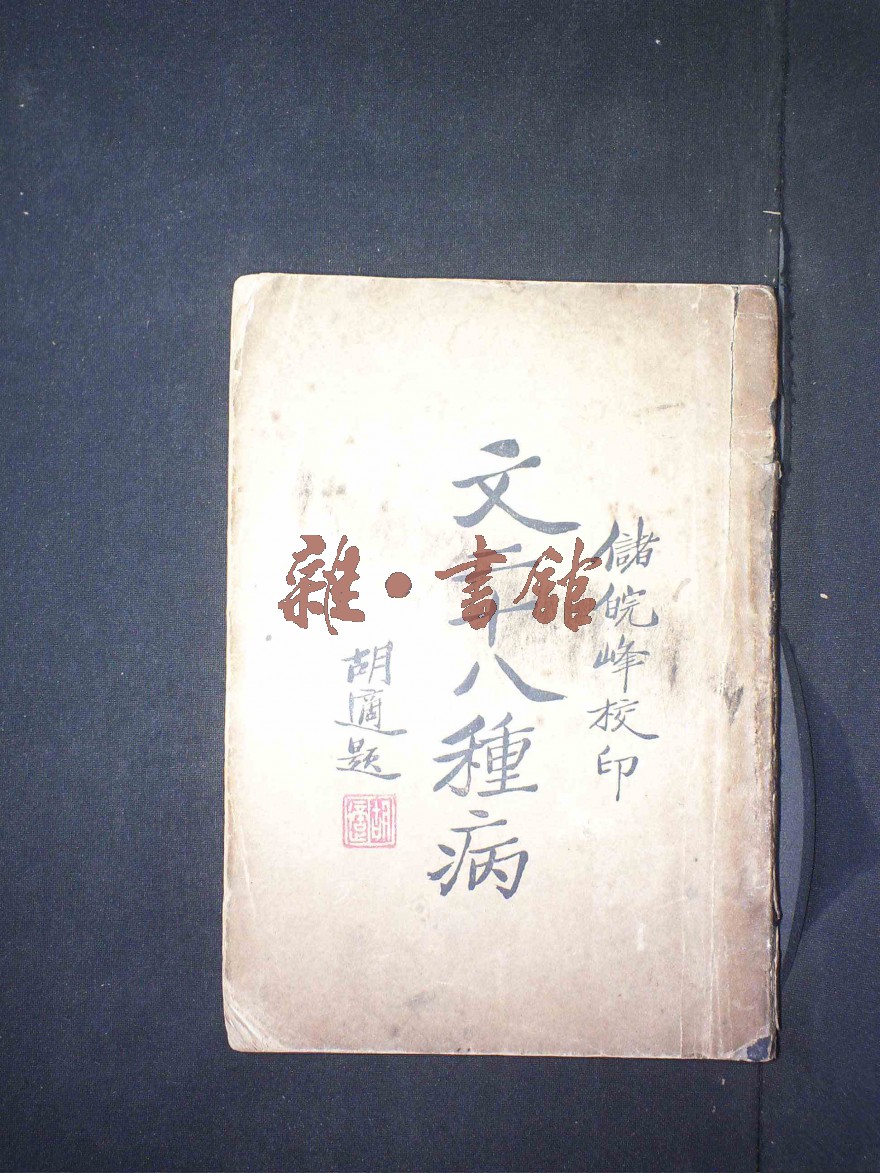 儲皖峰校印
文二十八種病
胡適題
胡適
雜·書館